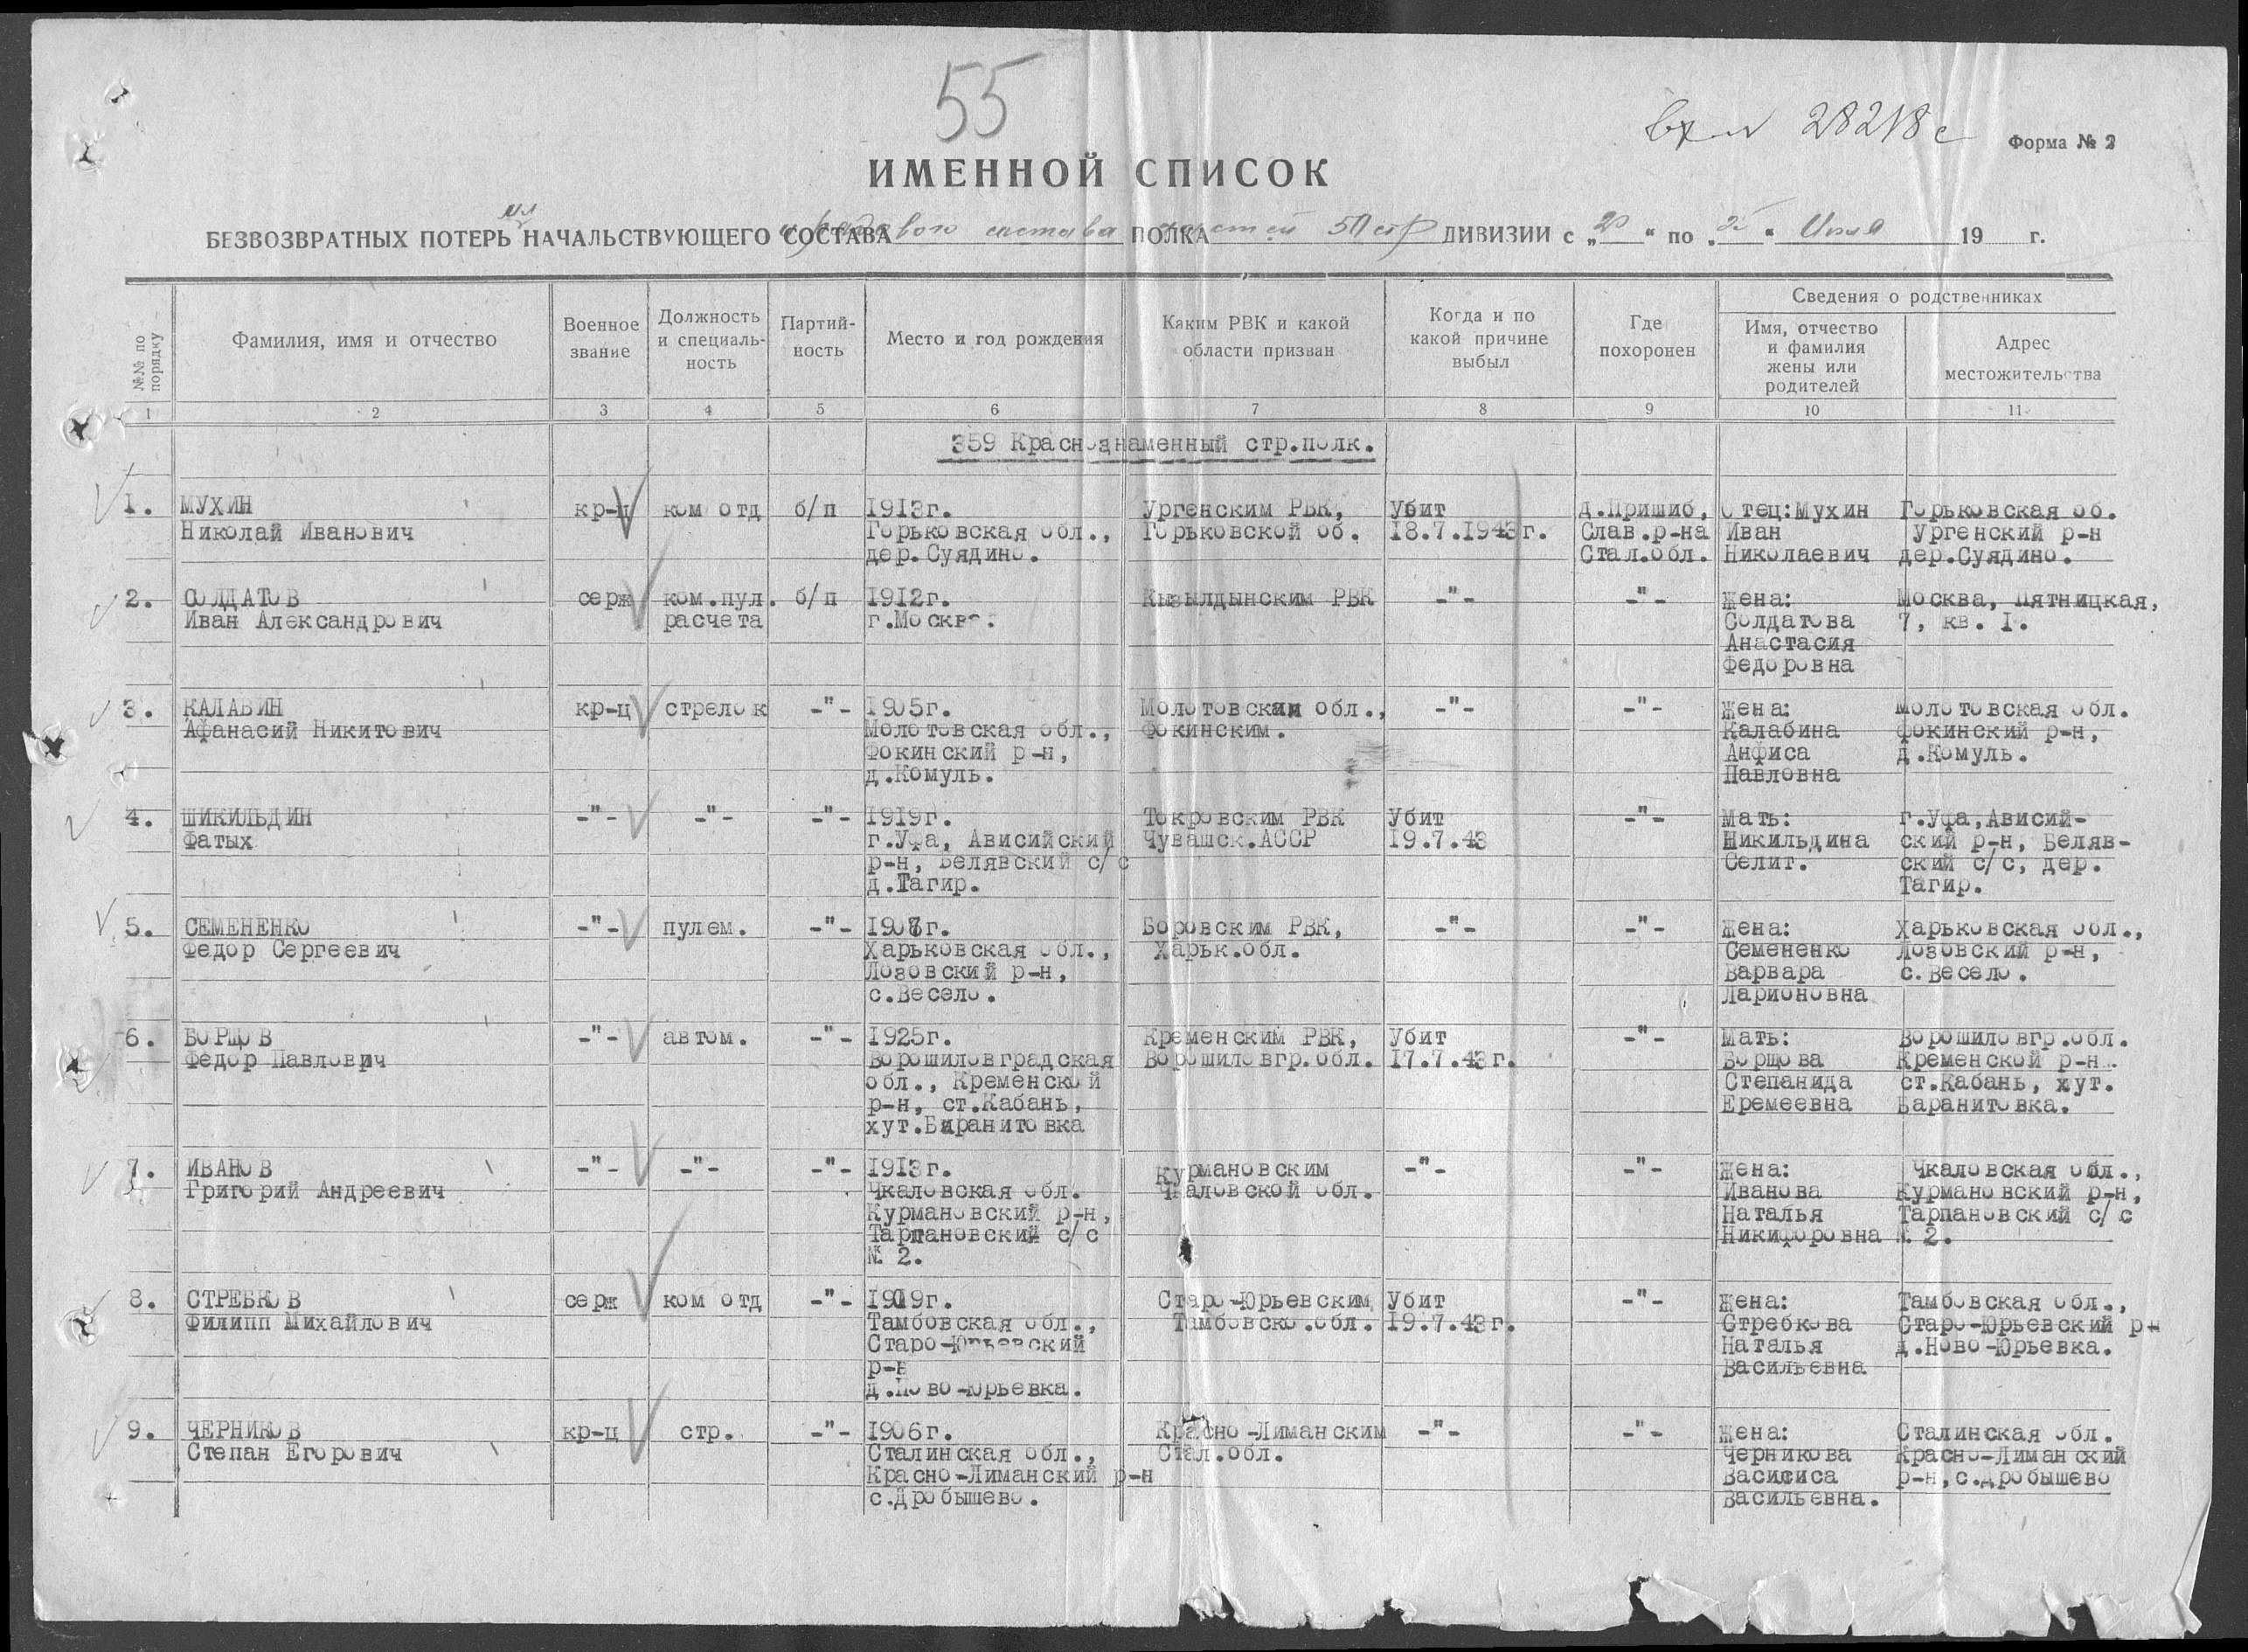 55
вх № 28218с
Форма № 2
ИМЕННОЙ СПИСОК
мл
БЕЗВОЗВРАТНЫХ ПОТЕРЬ НАЧАЛЬСТВУЮЩЕГО СОСТАВА и рядового состава ПОЛКА частей 50 стр ДИВИЗИИ с „20“ по „25“ Июля 19 г.
№№ по порядку
Фамилия, имя и отчество
Военное звание
Должность и специальность
Партийность
Место и год рождения
Каким РВК и какой области призван
Когда и по какой причине выбыл
Где похоронен
Сведения о родственниках
Имя, отчество и фамилия жены или родителей
Адрес местожительства
1 2 3 4 5 6 7 8 9 10 11
359 Краснознаменный стр.полк.
1. МУХИН кр-ц ком отд б/п 1913г. Ургенским РВК, Убит д.Пришиб, Отец:Мухин Горьковская об.
Николай Иванович Горьковская обл., Горьковской об. 18.7.1943г. Слав.р-на Иван Ургенский р-н
дер.Суядино. Стал.обл. Николаевич дер.Суядино.
2. СОЛДАТОВ серж ком.пул. б/п 1912г. Кызылдынским РВК -"- -"- Жена: Москва, Пятницкая,
Иван Александрович расчета г.Москва. Солдатова 7, кв. I.
Анастасия
Федоровна
3. КАЛАБИН кр-ц стрелок -"- 1905г. Молотовская обл., -"- -"- Жена: Молотовская обл.
Афанасий Никитович Молотовская обл., Фокинским. Калабина Фокинский р-н,
Фокинский р-н, Анфиса д.Комуль.
д.Комуль. Павловна
4. ШИКИЛЬДИН -"- -"- -"- 1919г. Токровским РВК Убит -"- Мать: г.Уфа,Ависий-
Фатых г.Уфа, Ависийский Чувашск.АССР 19.7.43 Шикильдина ский р-н, Беляв-
р-н, Белявский с/с Селит. ский с/с, дер.
д.Тагир. Тагир.
5. СЕМЕНЕНКО -"- пулем. -"- 1907г. Боровским РВК, -"- -"- Жена: Харьковская обл.,
Федор Сергеевич Харьковская обл., Харьк.обл. Семененко Лозовский р-н,
Лозовский р-н, Варвара с.Весело.
с.Весело. Ларионовна
6. БОРЩОВ -"- автом. -"- 1925г. Кременским РВК, Убит -"- Мать: Ворошиловгр.обл.
Федор Павлович Ворошиловградская Ворошиловгр.обл. 17.7.43г. Борщова Кременской р-н.
обл., Кременской Степанида ст.Кабань, хут.
р-н, ст.Кабань, Еремеевна Баранитовка.
хут.Баранитовка
7. ИВАНОВ -"- -"- -"- 1913г. Курмановским -"- -"- Жена: Чкаловская обл.,
Григорий Андреевич Чкаловская обл. Чкаловской обл. Иванова Курмановский р-н,
Курмановский р-н, Наталья Тарпановский с/с
Тарпановский с/с Никифоровна № 2.
№ 2.
8. СТРЕБКОВ серж ком отд -"- 1909г. Старо-Юрьевским Убит -"- Жена: Тамбовская обл.,
Филипп Михайлович Тамбовская обл., Тамбовско.обл. 19.7.43г. Стребкова Старо-Юрьевский р-
Старо-Юрьевский Наталья д.Ново-Юрьевка.
р-н Васильевна
д.Ново-Юрьевка.
9. ЧЕРНИКОВ кр-ц стр. -"- 1906г. Красно-Лиманским -"- -"- Жена: Сталинская обл.
Степан Егорович Сталинская обл., Стал.обл. Черникова Красно-Лиманский
Красно-Лиманский р-н Василиса р-н,с.Дробышево
с.Дробышево. Васильевна.